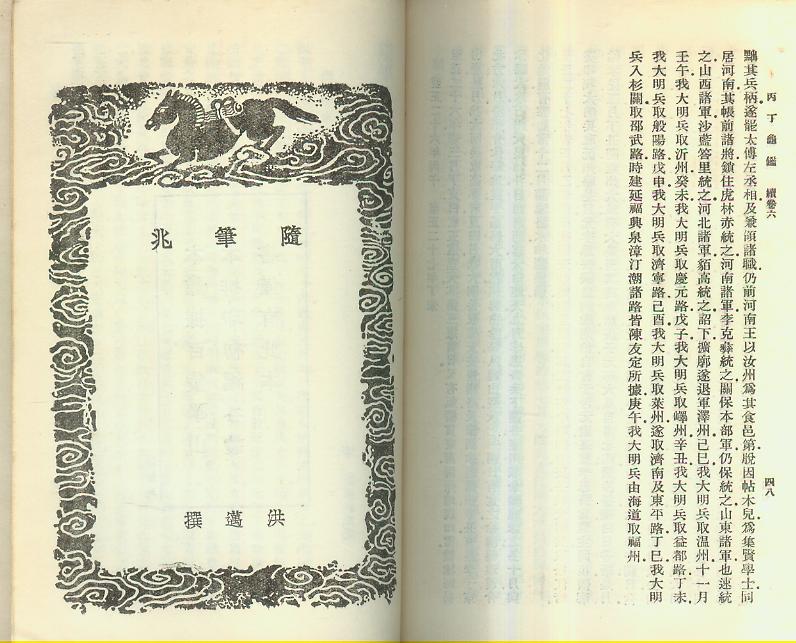 丙丁龜鑑 續卷六 四八
其兵柄遂罷太傅左丞相及兼領諸職仍前河南王以汝州爲其食邑第脫因帖木兒爲集賢學士同
居河南其帳前諸將鎖住虎林赤統之河南諸軍李克彝統之關保本部軍仍保統之山東諸軍也速統
之山西諸軍沙藍答里統之河北諸軍貊高統之詔下擴廓遂退軍澤州己巳我大明兵取温州十一月
壬午我大明兵取沂州癸未我大明兵取慶元路戊子我大明兵取嶧州辛丑我大明兵取益都路丁未
我大明兵取般陽路戊申我大明兵取濟寧路己酉我大明兵取萊州遂取濟南及東平路丁巳我大明
兵入杉關取邵武路時建延福興泉漳汀潮諸路皆陳友定所據庚午我大明兵由海道取福州
隨筆兆
洪邁撰